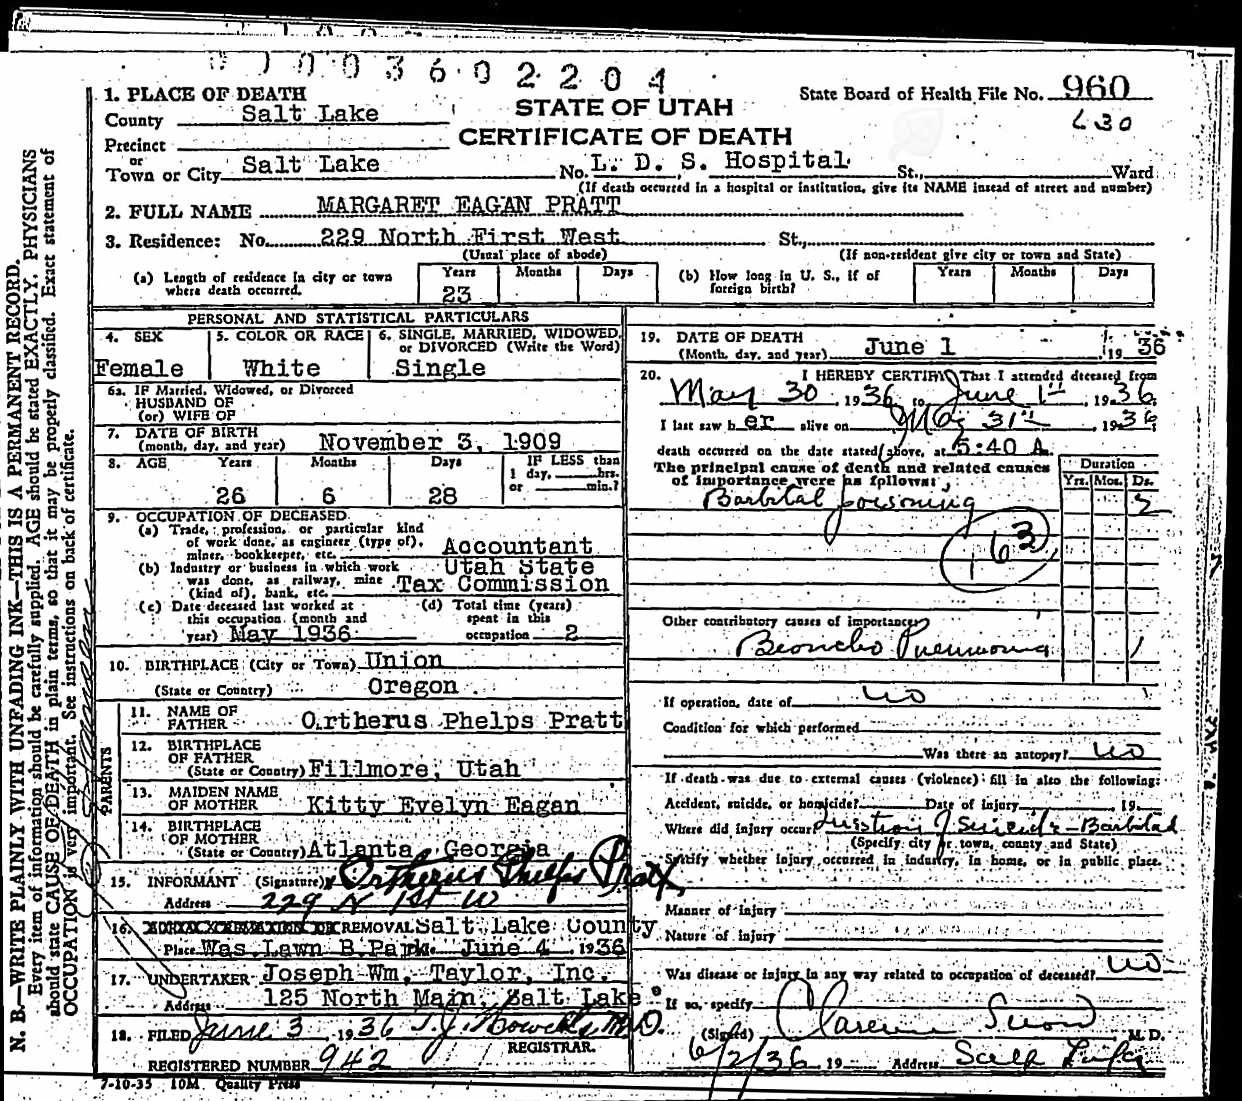 0 1 0 0 3 6 0 2 2 0 4
1. PLACE OF DEATH
County Salt Lake
Precinct
or
Town or City Salt Lake
STATE OF UTAH
CERTIFICATE OF DEATH
State Board of Health File No. 960
630
No. L. D. S. Hospital St., Ward
(If death occurred in a hospital or institution, give its NAME instead of street and number)
2. FULL NAME MARGARET EAGAN PRATT
3. Residence: No. 229 North First West St.,
(Usual place of abode) (If non-resident give city or town and State)
(a) Length of residence in city or town where death occurred. Years 23 Months Days
(b) How long in U. S., if of foreign birth? Years Months Days
PERSONAL AND STATISTICAL PARTICULARS
4. SEX Female
5. COLOR OR RACE White
6. SINGLE, MARRIED, WIDOWED, or DIVORCED (Write the Word) Single
6a. IF Married, Widowed, or Divorced
HUSBAND OF
(or) WIFE OF
7. DATE OF BIRTH
(month, day, and year) November 3, 1909
8. AGE Years 26 Months 6 Days 28
IF LESS than 1 day, hrs. or min.?
9. OCCUPATION OF DECEASED
(a) Trade, profession, or particular kind of work done, as engineer (type of), miner, bookkeeper, etc. Accountant
(b) Industry or business in which work was done, as railway, mine (kind of), bank, etc. Utah State Tax Commission
(c) Date deceased last worked at this occupation (month and year) May 1936
(d) Total time (years) spent in this occupation 2
10. BIRTHPLACE (City or Town) Union
(State or Country) Oregon
PARENTS
11. NAME OF FATHER Ortherus Phelps Pratt
12. BIRTHPLACE OF FATHER
(State or Country) Fillmore, Utah
13. MAIDEN NAME OF MOTHER Kitty Evelyn Eagan
14. BIRTHPLACE OF MOTHER
(State or Country) Atlanta, Georgia
15. INFORMANT (Signature) Ortherus Phelps Pratt
Address 229 N 1st W
16. REMOVAL Salt Lake County
Place Was. Lawn B. Park June 4 1936
17. UNDERTAKER Joseph Wm. Taylor, Inc.
Address 125 North Main, Salt Lake
18. FILED June 3, 1936 T. J. Howells, M.D.
REGISTRAR.
REGISTERED NUMBER 942
7-10-35 10M Quality Press
19. DATE OF DEATH
(Month, day, and year) June 1 19 36
20. I HEREBY CERTIFY That I attended deceased from
May 30, 1936 to June 1st, 1936,
I last saw h er alive on May 31st, 1936
death occurred on the date stated above, at 5:40 A.
The principal cause of death and related causes of importance were as follows:
Duration
Yrs. Mos. Ds.
Barbital poisoning 2
163
Other contributory causes of importance:
Broncho Pneumonia 1
If operation, date of no
Condition for which performed
Was there an autopsy? no
If death was due to external causes (violence) fill in also the following:
Accident, suicide, or homicide? Date of injury 19
Where did injury occur? Question of Suicide - Barbital
(Specify city or town, county and State)
Specify whether injury occurred in industry, in home, or in public place.
Manner of injury
Nature of injury
Was disease or injury in any way related to occupation of deceased? no
If so, specify
(Signed) Clarence Snow M. D.
6/2/36 19 Address
N. B.—WRITE PLAINLY WITH UNFADING INK—THIS IS A PERMANENT RECORD.
Every item of information should be carefully supplied. AGE should be stated EXACTLY. PHYSICIANS
should state CAUSE OF DEATH in plain terms, so that it may be properly classified. Exact statement of
OCCUPATION is very important. See instructions on back of certificate.